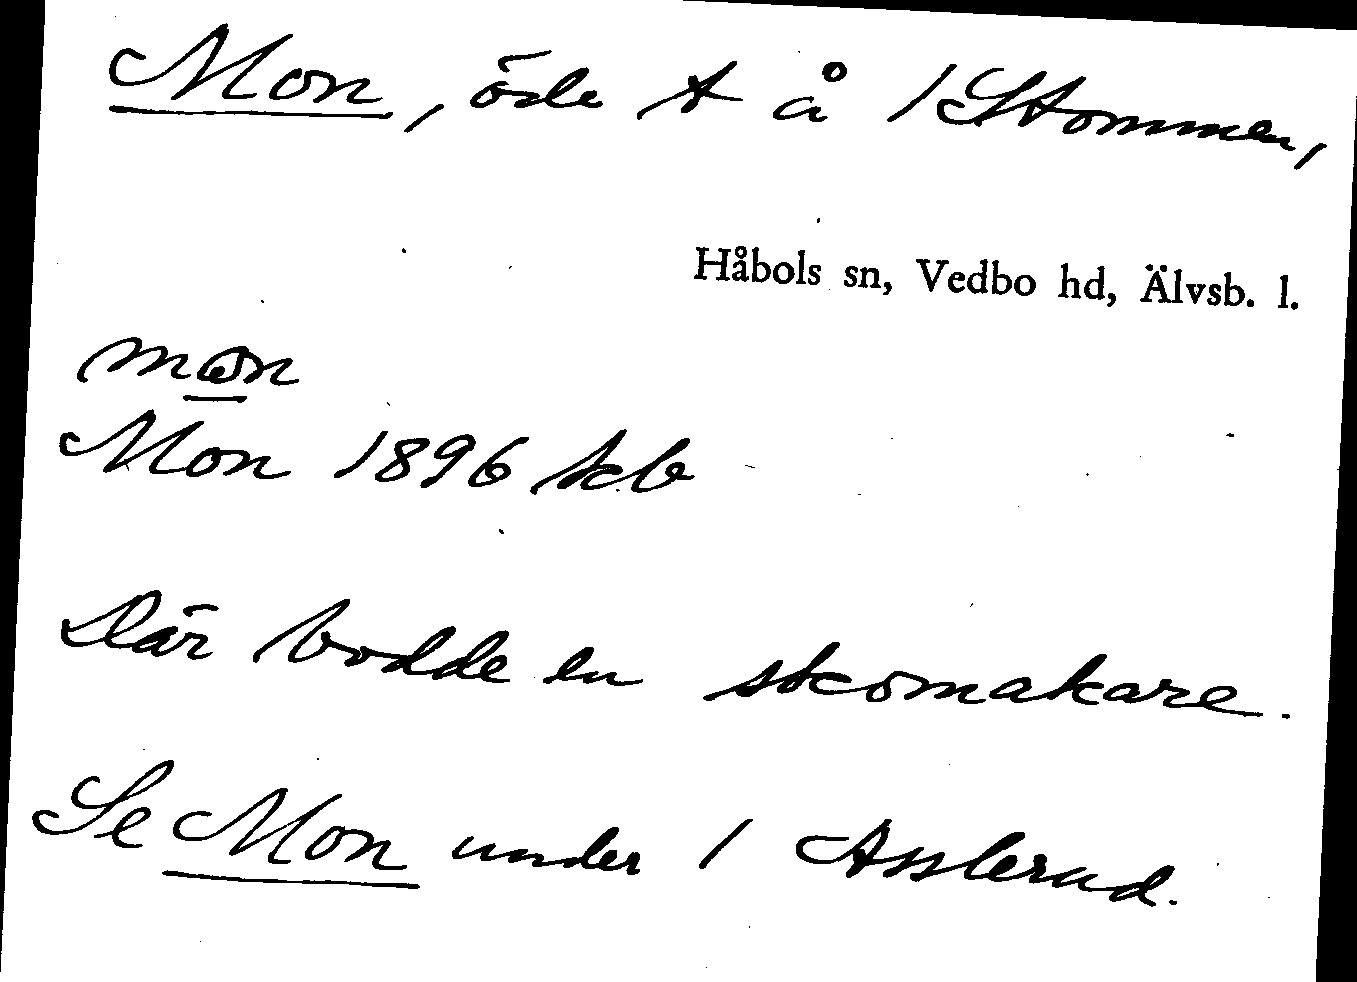 Mon, öde t å 1 Stommen,
Håbols sn, Vedbo hd, Älvsb. l.
mon
Mon 1896 kb
Där bodde en skomakare.
Se Mon under 1 Asslerud.